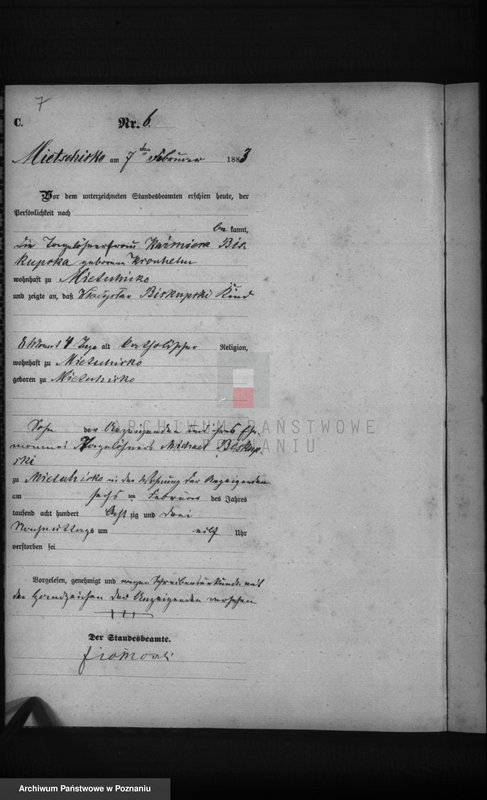 7
C.
Nr. 6.
Mietschisko am 7ten Februar 1883
Vor dem unterzeichneten Standesbeamten erschien heute, der
Persönlichkeit nach
bekannt,
die Tagelöhnerfrau Kazmiera Bis-
kupska geborene
wohnhaft zu Mietschisko
und zeigte an, daß Wladyslav Biskupski Kind
alt katholischer Religion,
wohnhaft zu Mietschisko
geboren zu Mietschisko
ARCHIWUM PAŃSTWOWE
W POZNANIU
Sohn der Anzeigenden und ihres Ehe-
mannes Tagelöhners Michael Biskup-
ski
zu Mietschisko in der Wohnung der Anzeigenden
am sechs ten Februar des Jahres
tausend acht hundert acht zig und drei
Nachmittags um elf Uhr
verstorben sei
Vorgelesen, genehmigt und wegen Schreibensunkunde mit
den Handzeichen der Anzeigenden versehen
+++
Der Standesbeamte.
Archiwum Państwowe w Poznaniu